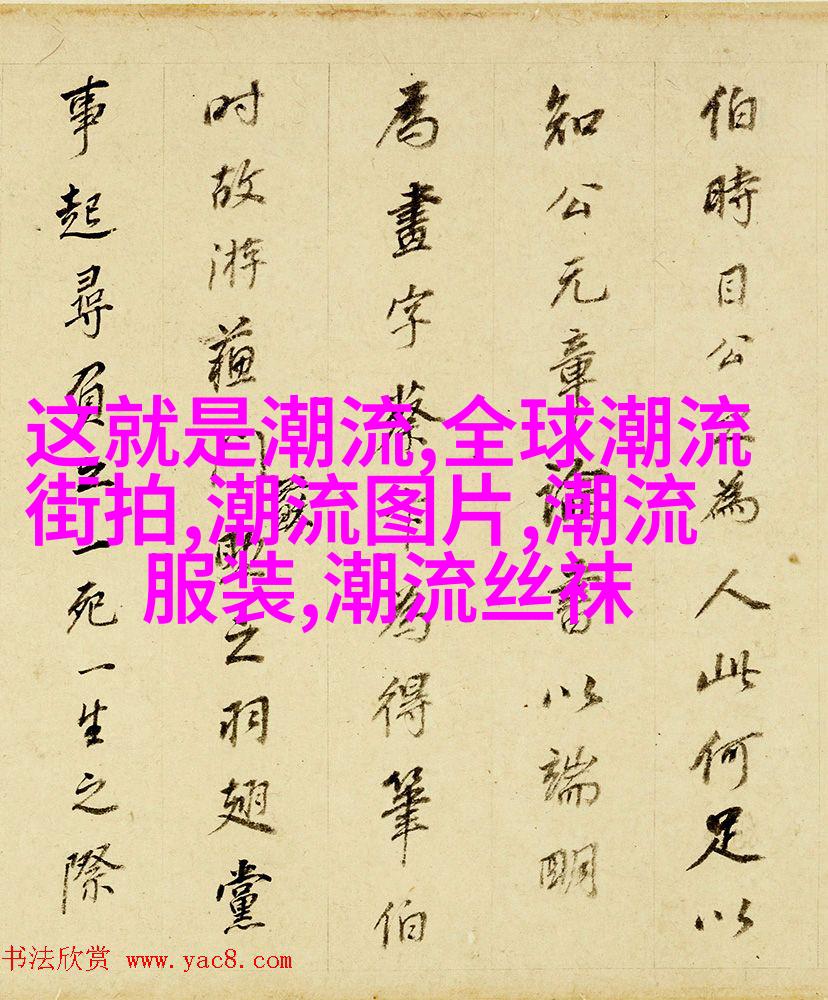 伯時目公為人此何足以
知公元章論書以端明
為畫字蔡為得筆伯
时故游蘓門之羽翅黨
事起尋負一死一生之際
这就是潮流,全球潮流
街拍,潮流图片,潮流
服装,潮流丝袜
书法欣赏 www.yac8.com